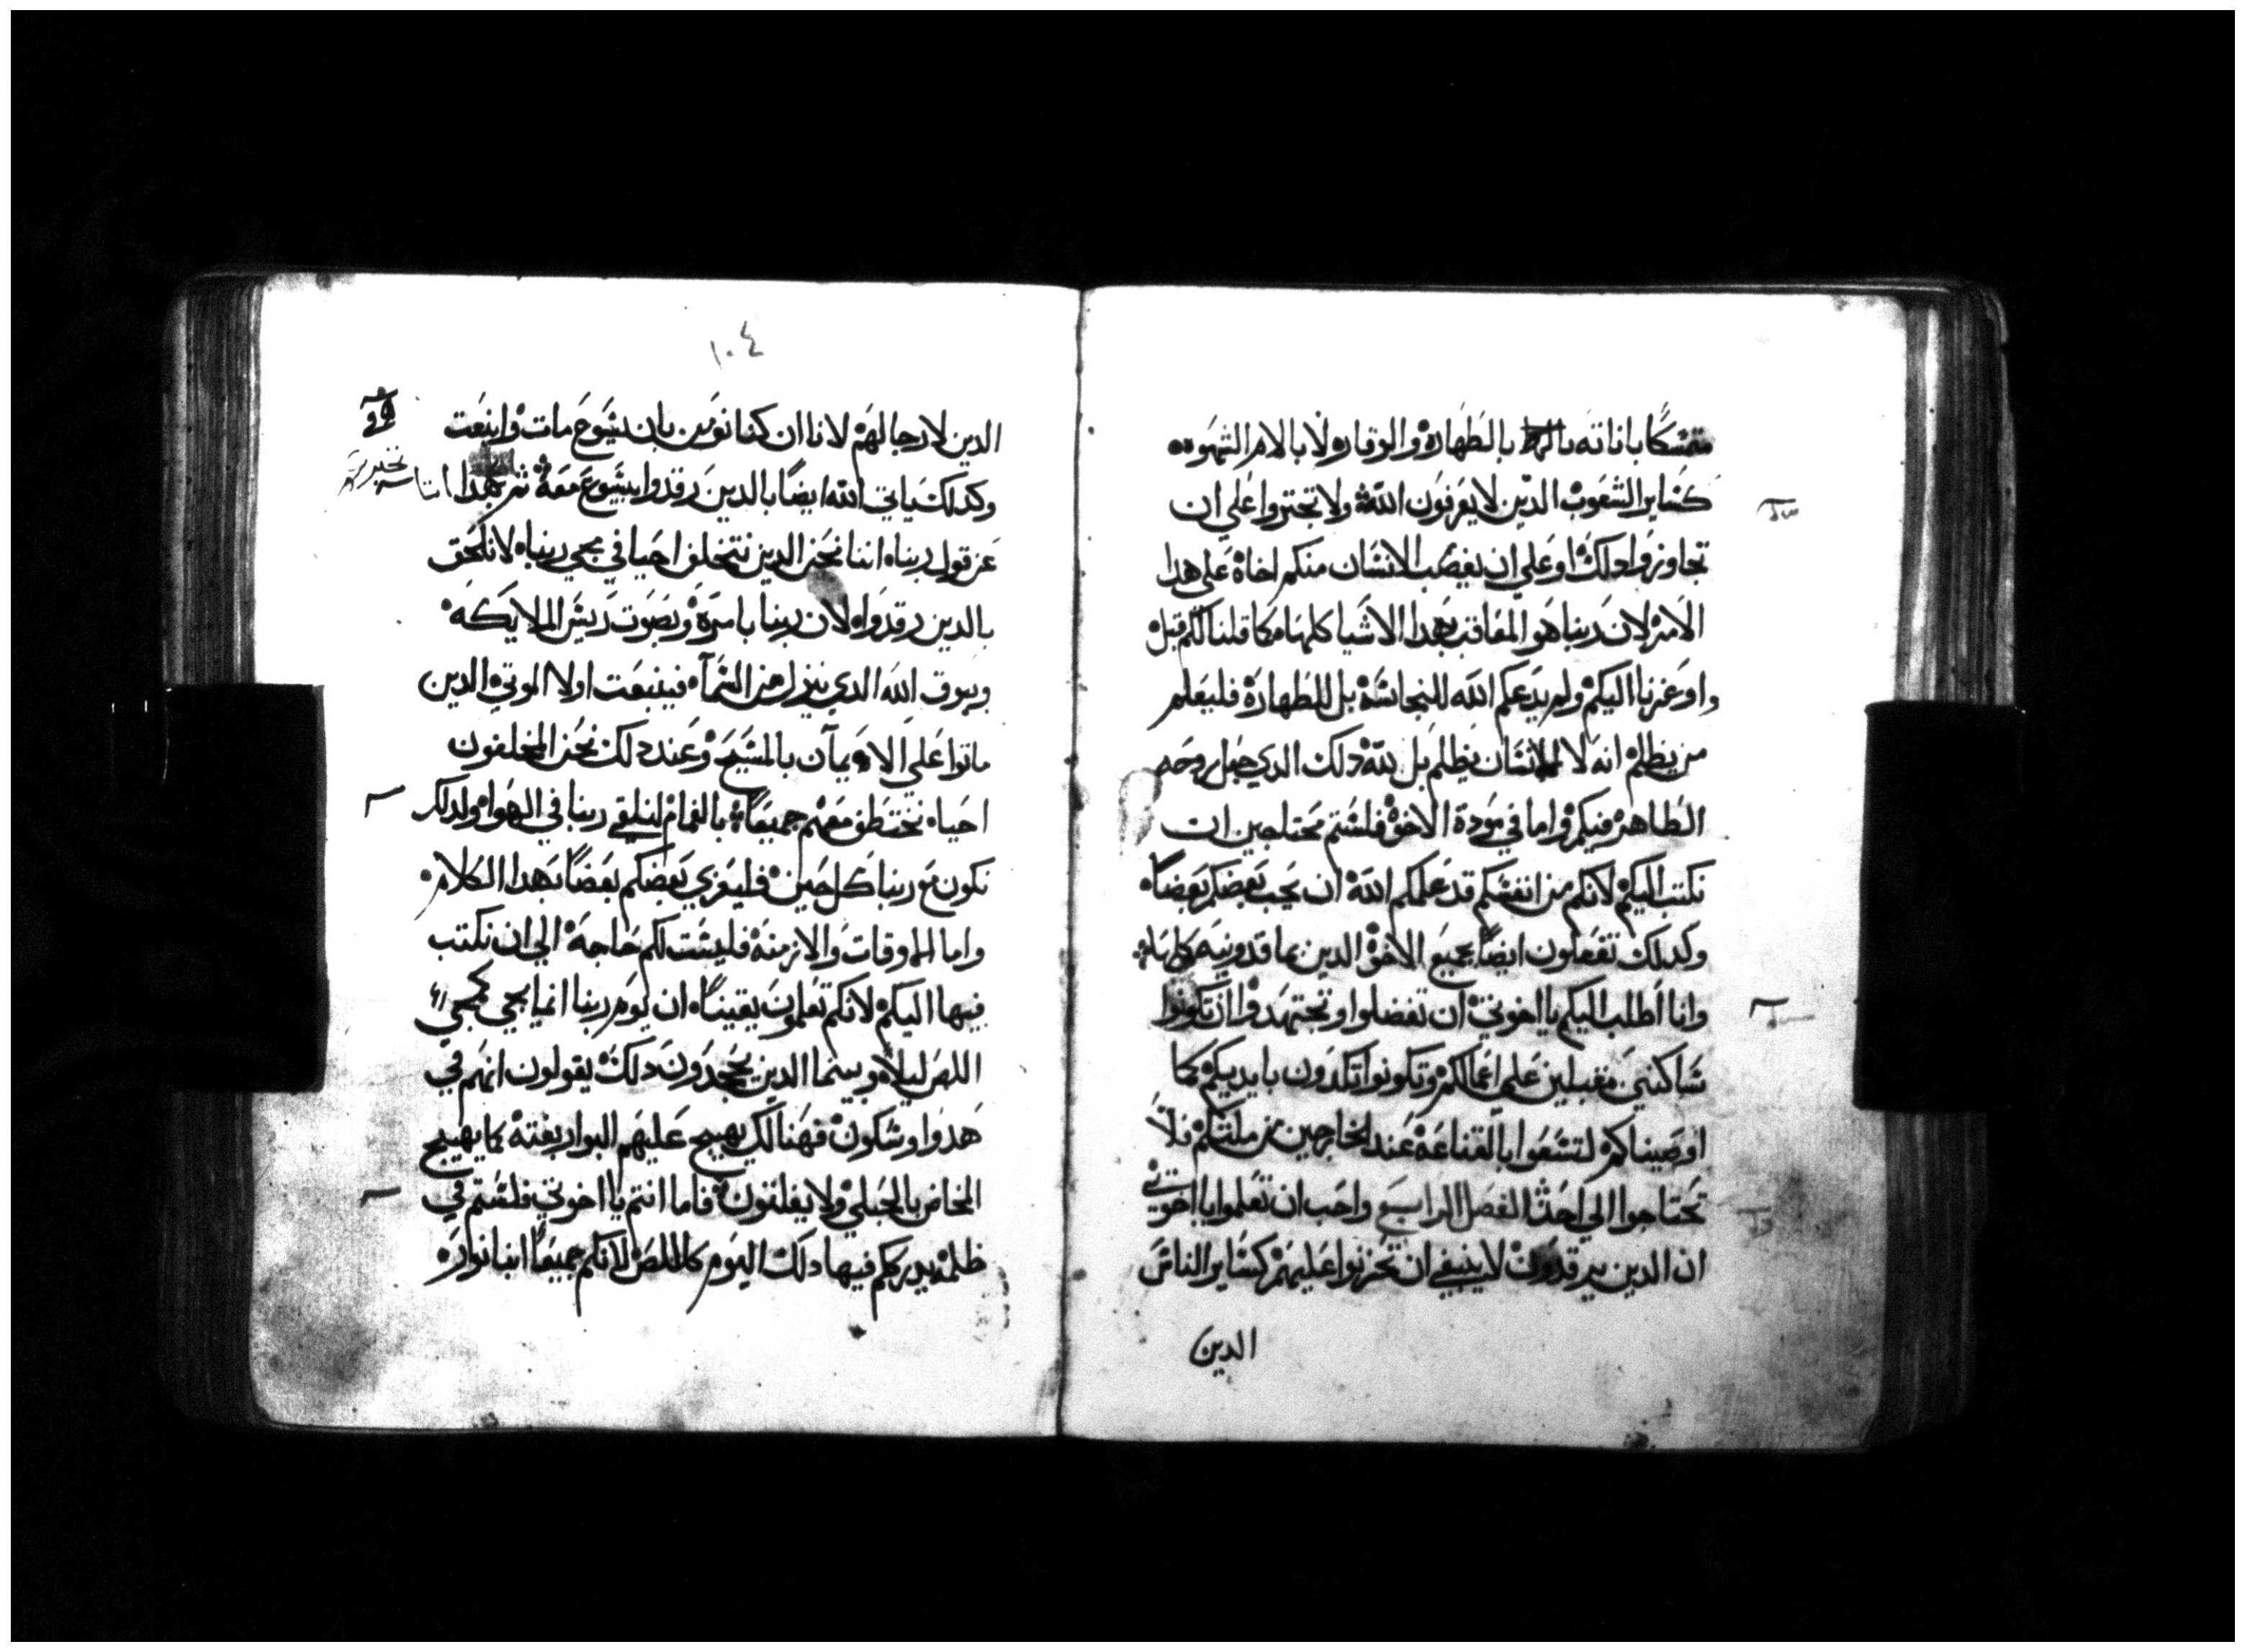 متمسكا باناته بالطهارة والوقار ولا بالام الشهوه
كساير الشعوب الدين لا يعرفون الله ولا تجتروا علي ان
تجاوزوا دلك او علي ان يغصب الانسان منكم اخاه علي هدا
الامر لان ربنا هو المعاقب بهدا الاشيا كلها كما قلنا لكم قبل
واوعزنا اليكم ولم يدعكم الله للنجاسة بل للطهارة فليعلم
من يظلم انه لا لانسان يظلم بل لله دلك الدي جعل روحه
الطاهر فيكم واما في مودة الاخوة فلستم محتاجين ان
نكتب اليكم لانكم من انفسكم قد علمكم الله ان يحب بعضكم بعضا
وكدلك تفعلون ايضا بجميع الاخوة الدين بماقدونيه كلها
وانا اطلب اليكم يا اخوتي ان تفضلوا وتجتهدوا ان تكونوا
ساكنين مقبلين علي اعمالكم وتكونوا تكدون بايديكم كما
اوصيناكم لتسعوا بالقناعة عند الخارجين من ملتكم فلا
تحتاجوا الي احد الفصل الرابع واحب ان تعلموا يا اخوتي
ان الدين يرقدون لا ينبغي ان تحزنوا عليهم كساير الناس
الدين
١٠٤
الدين لا رجا لهم لانا ان كنا نومن بان يسوع مات وانبعت
وكدلك ياتي الله ايضا بالدين رقدوا بيسوع معه بهدا
عن قول ربنا اننا نحن الدين نتخلف احيا في مجي ربنا لا نلحق
بالدين رقدوا لان ربنا بامره وبصوت ريس الملايكه
وببوق الله الدي ينزل من السمآ فينبعت اولا الموتي الدين
ماتوا علي الايمان بالمسيح وعند دلك نحن المخلفون
احيا نختطف معهم جميعا بالغمام لنلقي ربنا في الهوا ولدلك
نكون مع ربنا كل حين فليعزي بعضكم بعضا بهدا الكلام
واما الاوقات والازمنة فليست لكم حاجة الي ان نكتب
فيها اليكم لانكم تعلمون يقينا ان يوم ربنا انما يجي كمجي
اللص ليلا وبينما الدين يجحدون دلك يقولون انهم في
هدوا وسكون فهنالك يهيج عليهم البوار بغتة كما يهيج
المخاض بالحبلي ولا يفلتون فاما انتم يا اخوتي فلستم في
ظلمة يدرككم فيها دلك اليوم كاللص لانكم جميعا ابنا نور